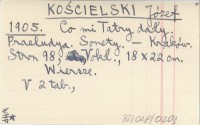 KOŚCIELSKI Józef
1905. Co mi Tatry dały.
Praeludya. Sonety. — Kraków.
Stron 98, 18 x 22 cm.
Wiersze.
V 2 tab.,